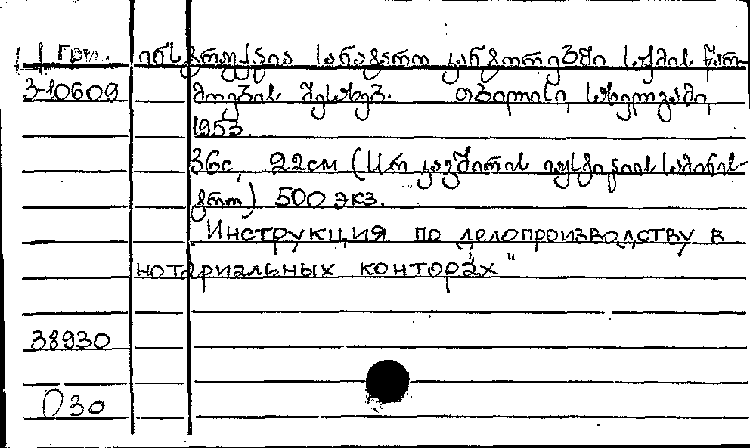 Груз. ინსტრუქცია სანატარო კანტორებში საქმის წარ-
3-10609 მოების შესახებ. თბილისი, სახელგამი,
1953.
36с, 22см (სსრ კავშირის იუსტიციის სამინის-
ტრო) 500 экз.
"Инструкция по делопроизводству в
нотариальных конторах"
38930
030